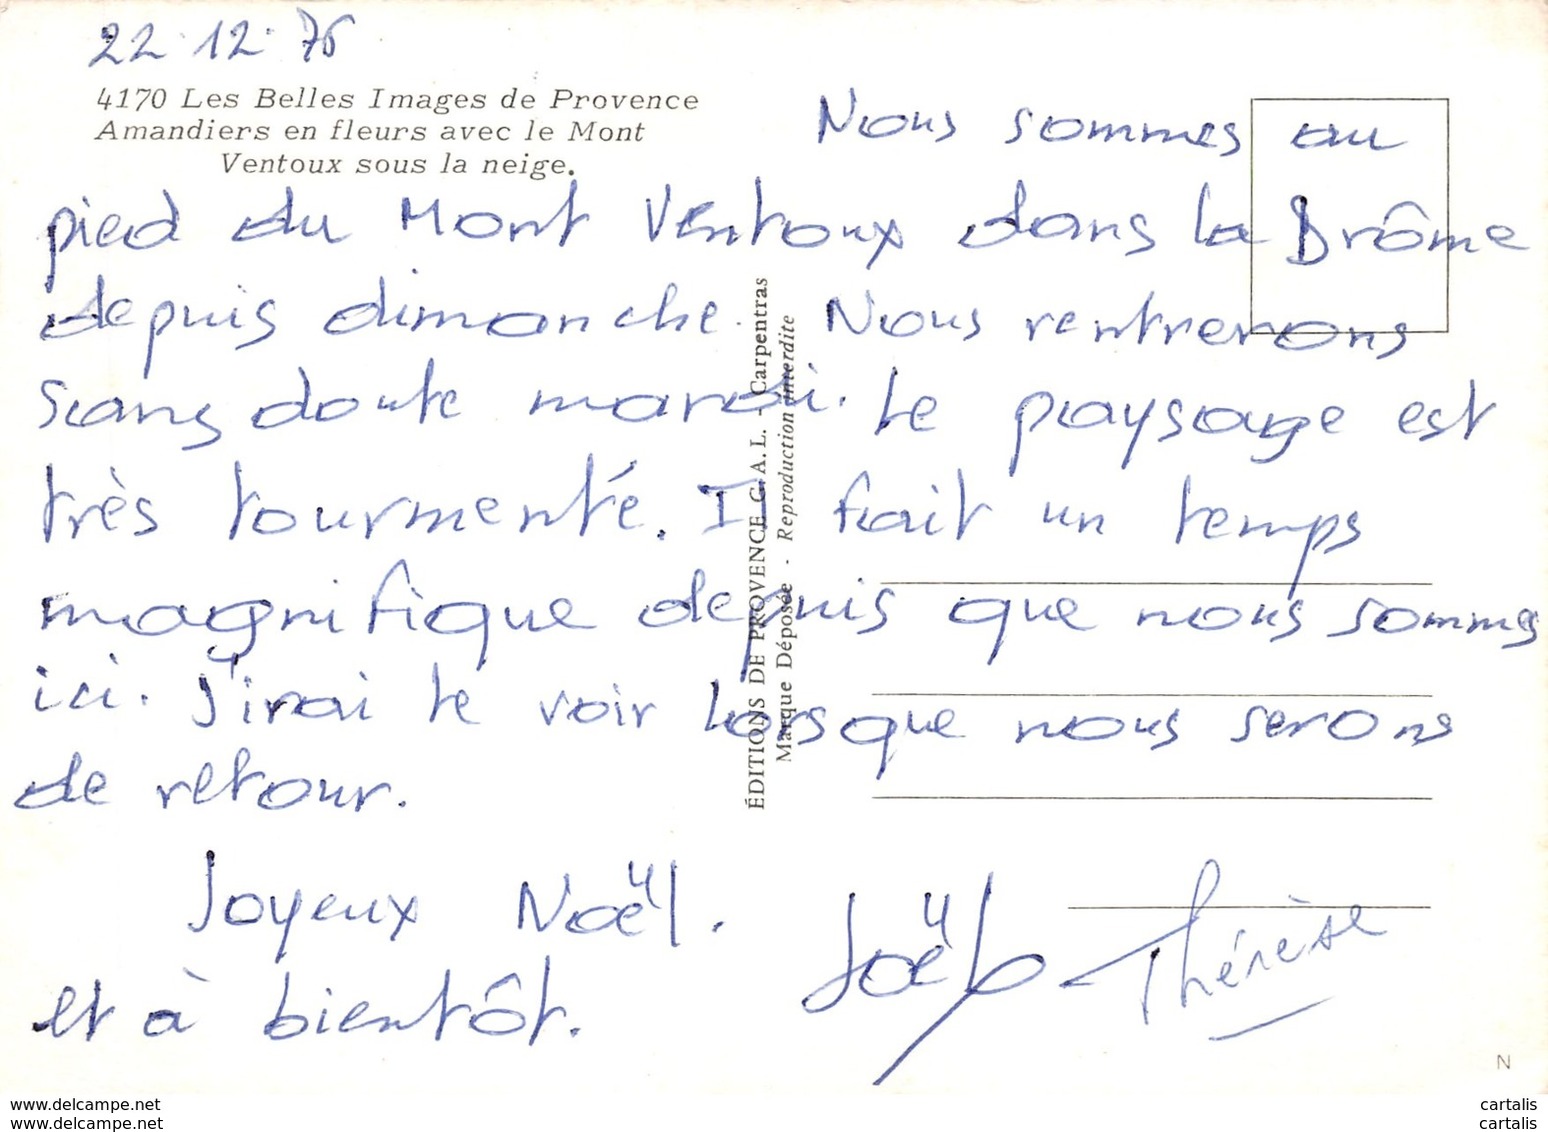 22.12.76
4170 Les Belles Images de Provence
Amandiers en fleurs avec le Mont
Ventoux sous la neige.
Nous sommes au
pied du Mont Ventoux dans la Drôme
depuis dimanche. Nous rentrerons
sans doute mardi. Le paysage est
très tourmenté. Il fait un temps
magnifique depuis que nous sommes
ici. J'irai te voir lorsque nous serons
de retour.
Joyeux Noël.
et à bientôt.
Joël
Thérèse
ÉDITIONS DE PROVENCE C.A.L. - Carpentras
Marque Déposée - Reproduction interdite
N
www.delcampe.net
www.delcampe.net
cartalis
cartalis